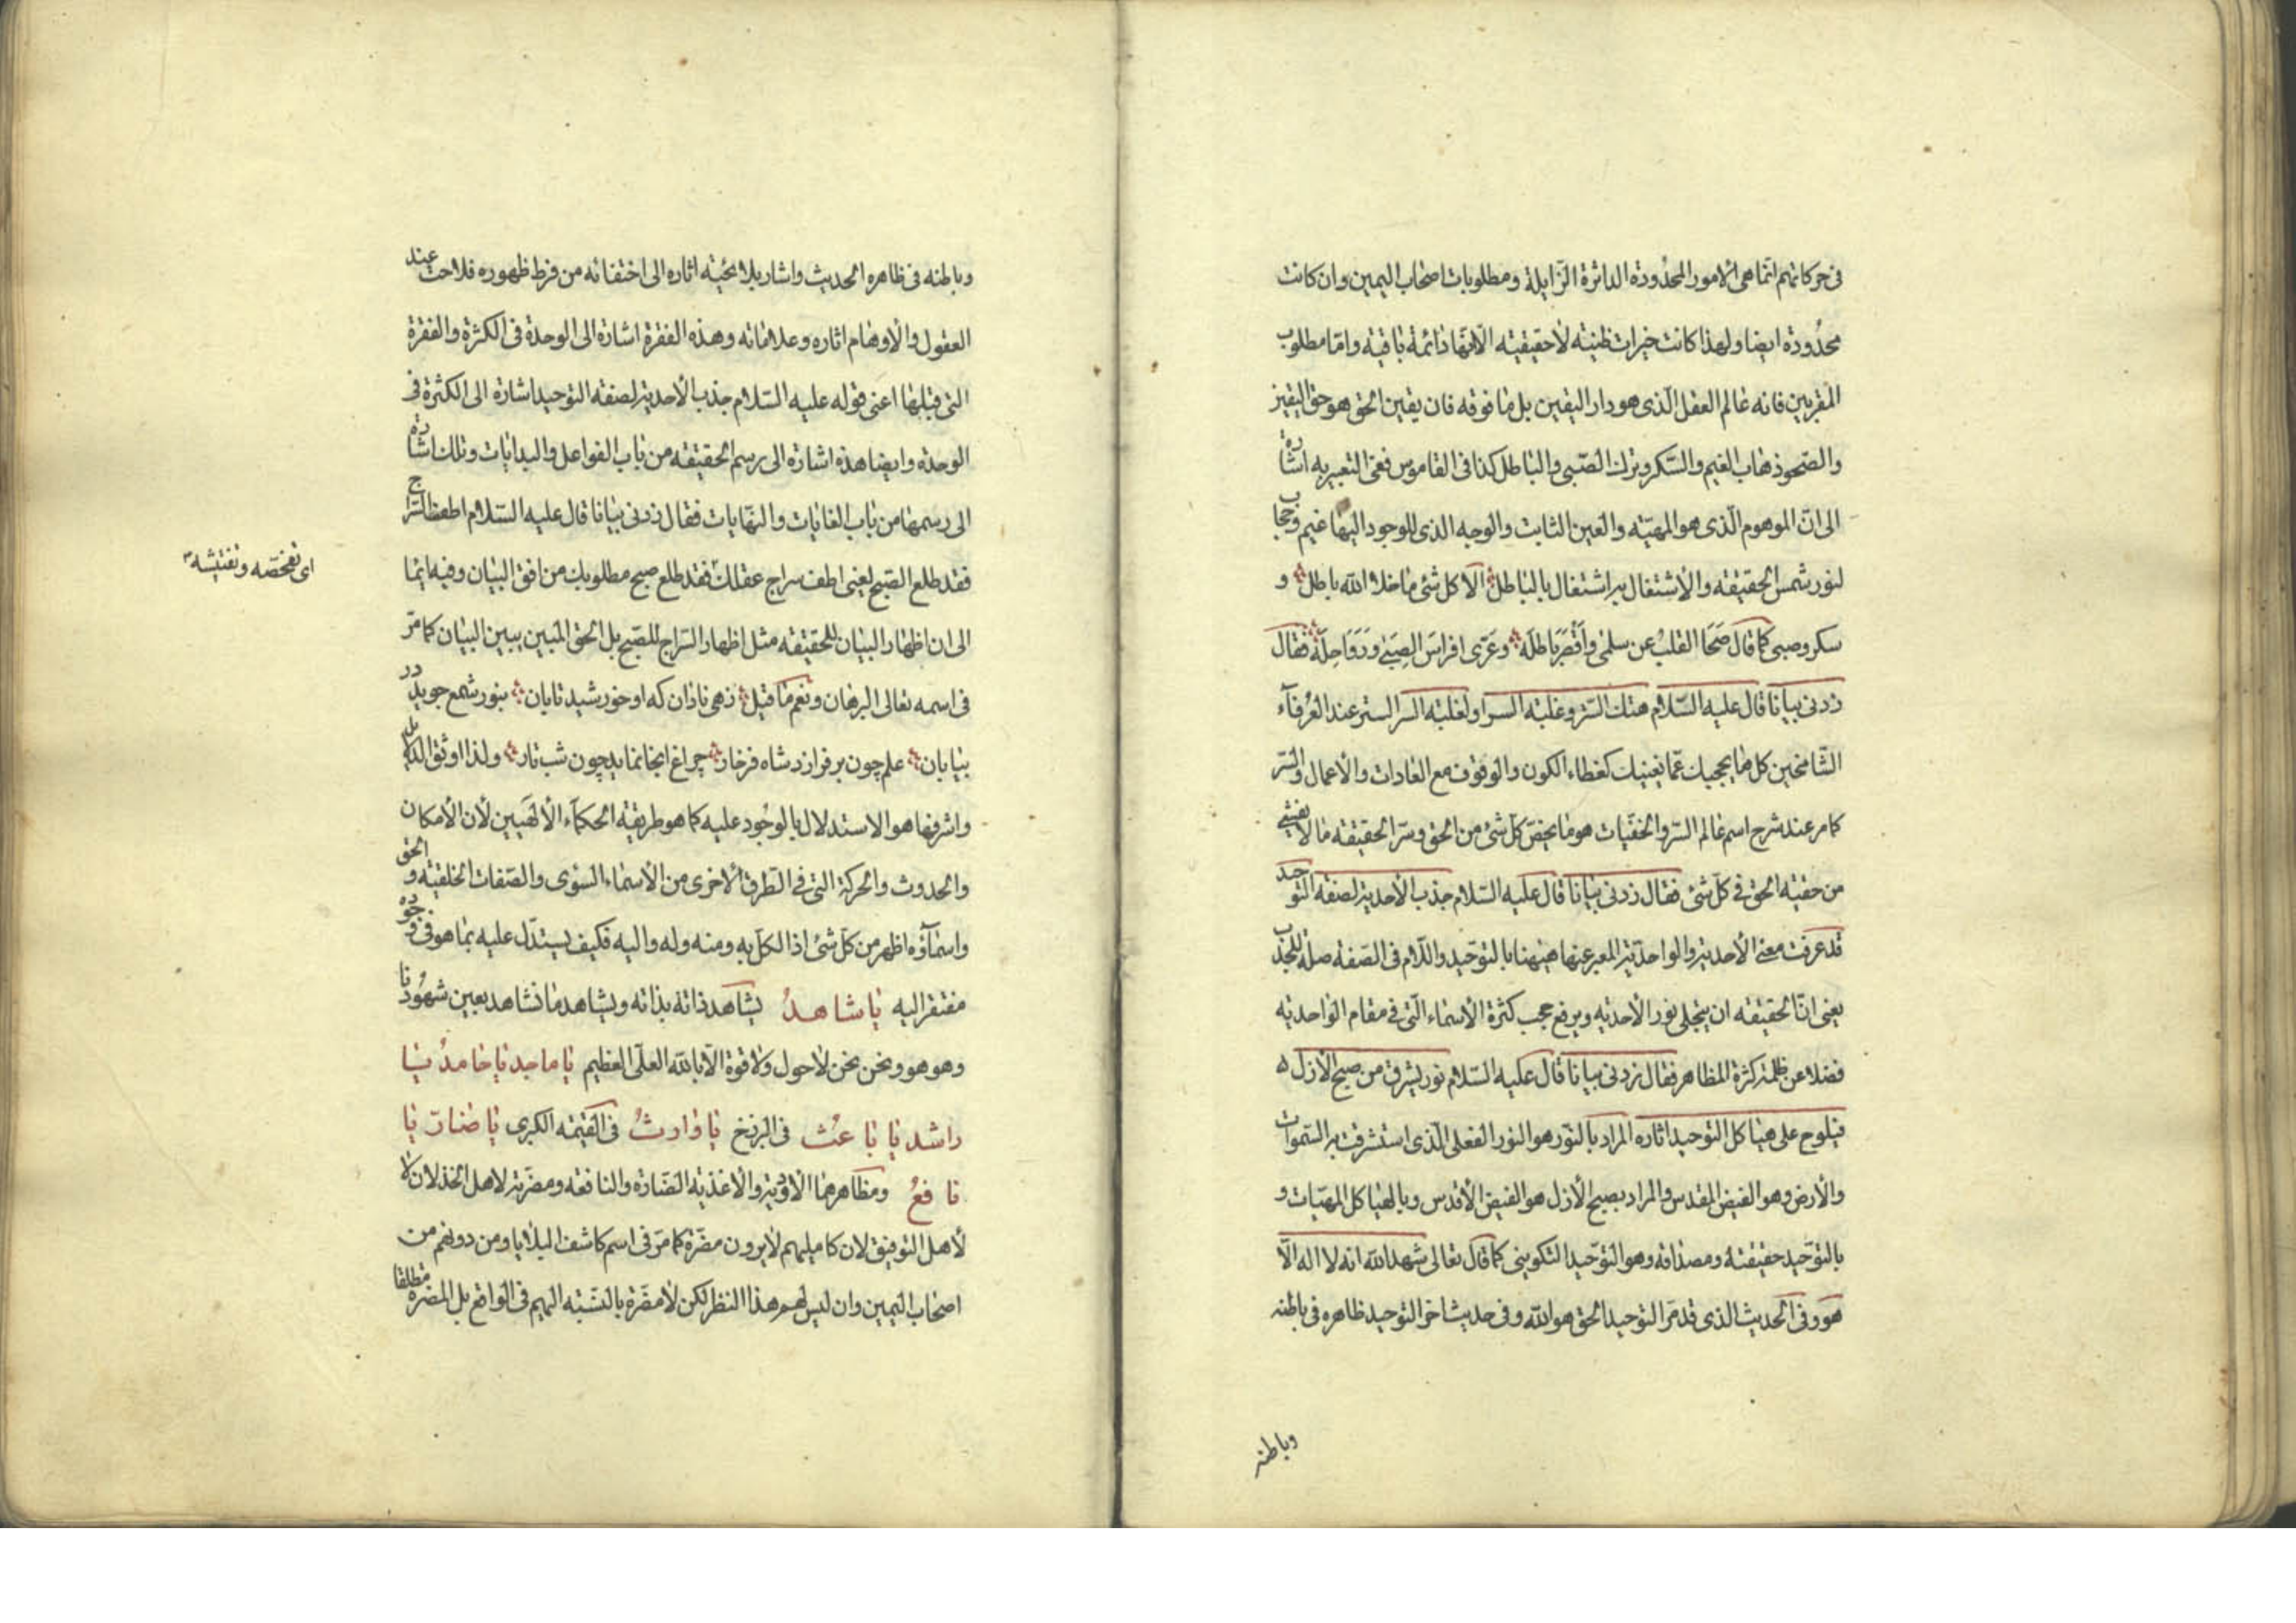 فى حركاتهم انّما هى الامور المحدُودة الداثرة الزّايلة ومطلوبات اصحاب اليمين وان كانت
محدُودة ايضا ولهذا كانت خيرات ظنيّه لا حقيقيّه الّا انّها دائمة باقية وامّا مطلوب
المقربين فانه عالم العقل الّذى هو دار اليقين بل ما فوقه فان يقين الحق هو حق اليقين
والصّحو ذهاب الغيم والسّكر وترك الصّبى والباطل كذا فى القاموس ففى التعبير به اشارة
الى انّ الموهوم الّذى هو المهيّة والعين الثابت والوجه الذى للوجود اليها غيم وحجاب
لنور شمس الحقيقة والاشتغال به اشتغال بالباطل الا كل شئ ما خلا الله باطل و
سكر وصبى كما قال صَحَا القلبُ عن سلمى وَاَقْصَرَ باطله وعَرّى افراسَ الصِبَى وَرَوَاحِلَهُ فقال
زدنى بيانا قال عليه السّلام هتك السّتر وغلبة السر او لغلبة السر الستر عند العُرفآء
الشّامخين كل ما يحجبك عمّا يعنيك كغطاء الكون والوقوف مع العادات والأعمال والسّر
كما مر عند شرح اسم عالم السّر والخفيّات هو ما يخصّ كل شئ من الحق وسرّ الحقيقة ما لا يفشى
من حقية الحق فى كلّ شئ فقال زدنى بيانا قال عليه السّلام جذب الأحدية لصفة التوحيد
قد عرفت معنى الأحدية والواحديّة المعبر عنها هيهنا بالتوحيد واللّام فى الصّفة صلة للجذب
يعنى انّ الحقيقة ان يتجلى نور الأحديّه ويرفع حجب كثرة الأسماء الّتى فى مقام الواحديه
فضلا عن ظلمة كثرة المظاهر فقال زدنى بيانا قال عليه السّلام نور يشرق من صبح الأزل
فيلوح على هياكل التوحيد اثاره المراد بالنّور هو النور الفعلى الّذى استشرقت به السّموات
والأرض وهو الفيض المقدس والمراد بصبح الأزل هو الفيض الأقدس وبالهياكل المهيّات و
بالتوّحيد حقيقتهُ ومصداقه وهو التوّحيد التكوينى كما قال تعالى شهد الله انّه لا اله الّا
هو وفى الحديث الذى قد مرّ التوحيد الحق هو الله وفى حديث اخر التوحيد ظاهره فى باطنه
وباطنه
وباطنه فى ظاهره الحديث واشار بلايحيّة اثاره الى اختفائه من فرط ظهوره فلاحت عند
العقول والأوهام اثاره وعلاماته وهذه الفقرة اشارة الى الوحدة فى الكثرة والفقرة
التى قبلها اعنى قوله عليه السّلام جذب الأحدية لصفة التوحيد اشارة الى الكثرة فى
الوحدة وايضا هذه اشارة الى رسم الحقيقة من باب الفواعل والبدايات وتلك اشارة
الى رسمها من باب الغايات والنّهايات فقال زدنى بيانا قال عليه السّلام اطفئ السّراج
فقد طلع الصّبح يعنى اطف سراج عقلك فقد طلع صبح مطلوبك من افق البيان وفيه ايماء
الى ان اظهار البيان للحقيقة مثل اظهار السّراج للصّبح بل الحق المبين يبين البيان كما مرّ
فى اسمه تعالى البرهان ونعم ما قيل زهى نادان كه او خورشيد تابان بنور شمع جويد در
بيابان علم چون بر فرازد شاه فرخار چراغ انجا نمايد چون شب تار ولذا اوثق الدلايل
واشرفها هو الاستدلال بالوجُود عليه كما هو طريقة الحكمآء الألٰهيين لأن الأمكان
والحدوث والحركة التى فى الطّرق الأخرى من الأسماء السؤى والصّفات الخلقيّة والحق
واسمآؤه اظهر من كلّ شئ اذ الكلّ به ومنه وله واليه فكيف يستدّل عليه بما هو فى وجوده
مفتقر اليه يا شاهدُ يشاهد ذاته بذاته ويشاهد ما نشاهد بعين شهُودنا
وهو هو ونحن نحن لا حول ولا قوة الّا بالله العلّى العظيم يا ماجد يا حامدُ يا
راشد يا باعثُ فى البرزخ يا وارثُ فى القيٰمة الكبرى يا ضارّ يا
نافعُ ومظاهرهما الأدوية والأغذية الضّارة والنافعة ومضرّته لاهل الخذلان لا
لأهل التوفيق لان كامليهم لا يرون مضرّة كما مرّ فى اسم كاشف البلايا ومن دونهم من
اصحاب اليمين وان ليس لهم هذا النظر لكن لا مضّرة بالنّسبة اليهم فى الواقع بل المضرة مطلقا
اى تفحّصه وتفتيشه